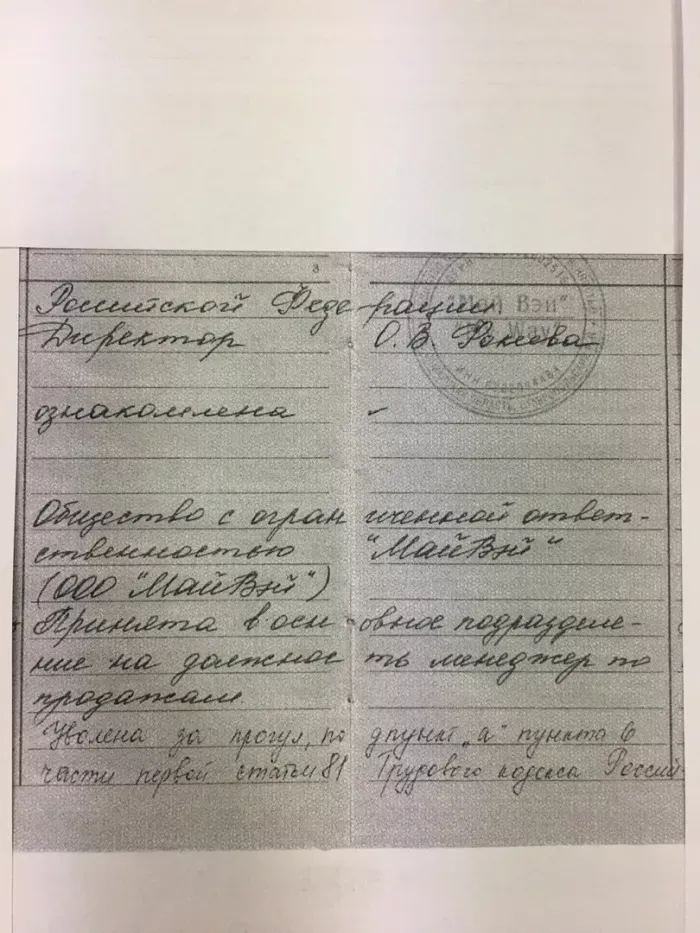 3
Российской Федерации
Директор О. В. Фокеева
"Май Вэй"
Way"
ИНН
ознакомлена
Общество с ограниченной ответ-
ственностью "МайВэй"
(ООО "МайВэй")
Принята в основное подразделе-
ние на должность менеджер по
продажам.
Уволена за прогул, подпункт "а" пункта 6
части первой статьи 81 Трудового кодекса Россий-